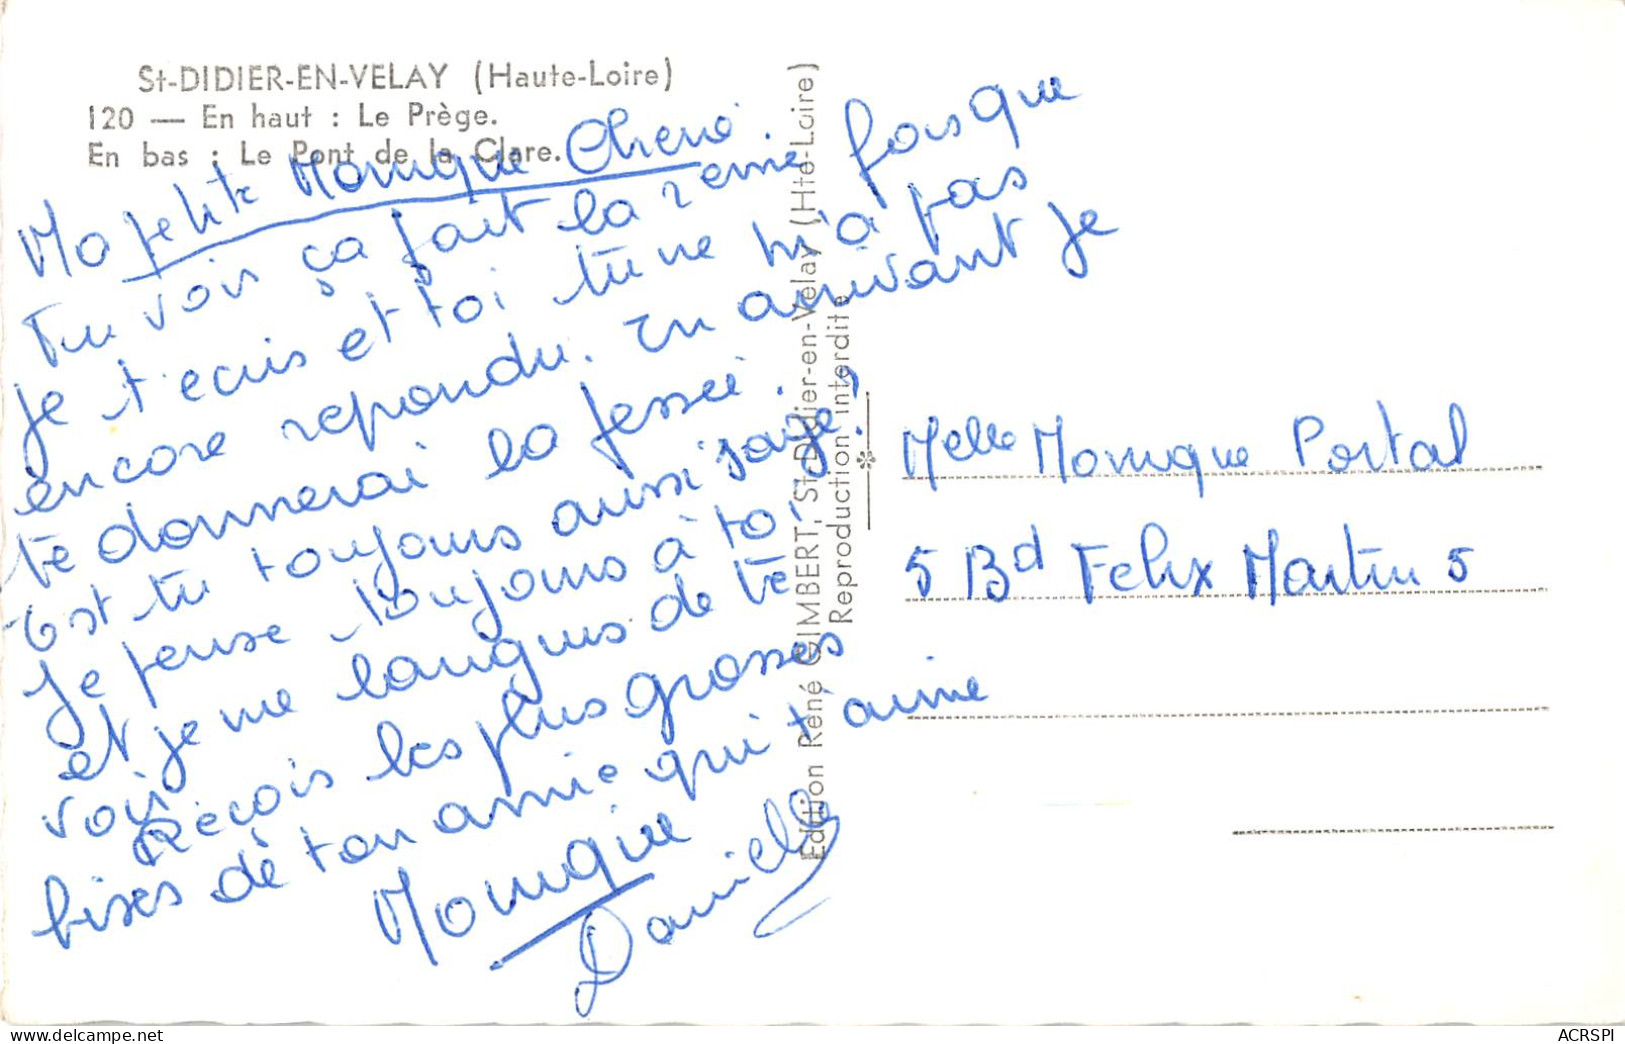 St-DIDIER-EN-VELAY (Haute-Loire)
120 — En haut : Le Prège.
En bas : Le Pont de la Clare.
Ma petite Monique Cheri.
Tu vois ça fait la 2eme fois que
je t'ecris et toi tu ne m'a pas
encore repondu. En arrivant je
te donnerai la fessée.
Est tu toujours aussi sage?
Je pense toujours à toi
et je me languis de te
voir
Reçois les plus grosses
bises de ton amie qui t'aime
Monique
Danielle
Edition René GIMBERT, St-Didier-en-Velay (Hte-Loire)
Reproduction interdite
Melle Monique Portal
5 Bd Felix Martin 5
delcampe.net
ACRSPI